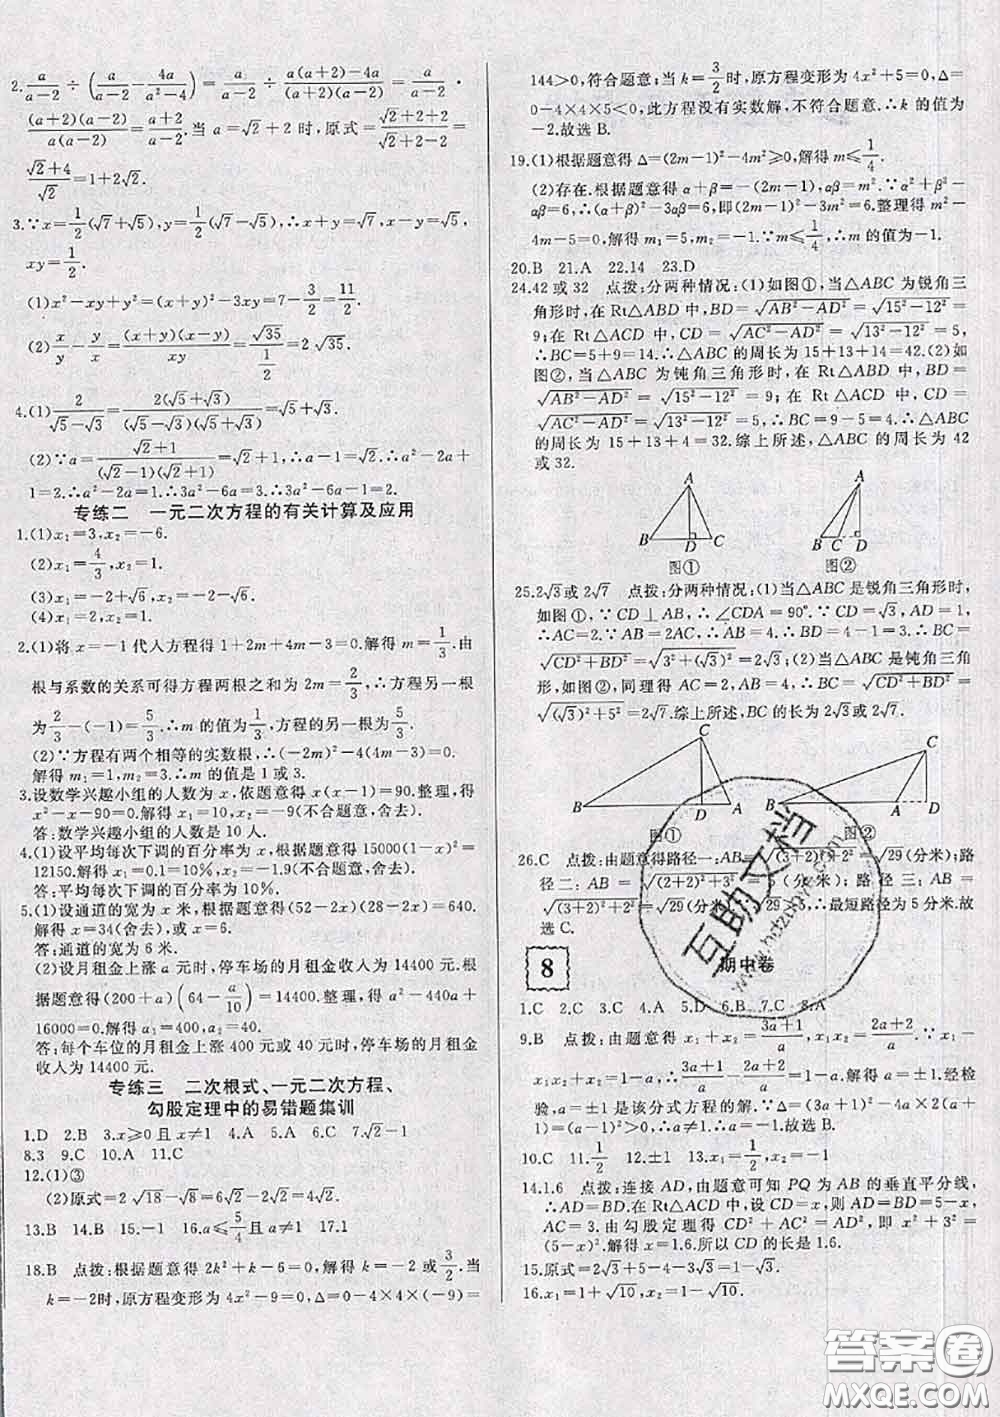 2. a/(a-2) ÷ (a/(a-2) - 4a/(a²-4)) = a/(a-2) ÷ (a(a+2)-4a)/((a+2)(a-2)) = a/(a-2) ·
(a+2)(a-2)/(a(a-2)) = (a+2)/(a-2).当 a=√2+2时,原式=(√2+2+2)/(√2+2-2)=
(√2+4)/√2=1+2√2.
3.∵x=1/2(√7+√5),y=1/2(√7-√5),∴x+y=√7,x-y=√5,
xy=1/2.
(1)x²-xy+y²=(x+y)²-3xy=7-3/2=11/2.
(2)x/y-y/x=(x+y)(x-y)/xy=√35/(1/2)=2√35.
4.(1)2/(√5-√3)=2(√5+√3)/((√5-√3)(√5+√3))=√5+√3.
(2)∵a=(√2+1)/((√2-1)(√2+1))=√2+1.∴a²-2a+
1=2.∴a²-2a=1.∴3a²-6a=3.∴3a²-6a-1=2.
专练二 一元二次方程的有关计算及应用
1.(1)x₁=3,x₂=-6.
(2)x₁=4/3,x₂=2.
(3)x₁=-2+√6,x₂=-2-√6.
(4)x₁=2,x₂=1.
2.(1)将x=-1代人方程得1+2m+4m-3=0.解得m=1/3.由
根与系数的关系可得方程两根之和为2m=2/3,∴方程另一根
为2/3-(-1)=5/3.∴m的值为1/3,方程的另一根为5/3.
(2)∵方程有两个相等的实数根,∴(-2m)²-4(4m-3)=0.
解得m₁=1,m₂=3.∴m的值是1或3.
3.设数学兴趣小组的人数为x,依题意得x(x-1)=90.整理,得
x²-x-90=0.解得x₁=10,x₂=-9(不合题意,舍去).
答:数学兴趣小组的人数是10人.
4.(1)设平均每次下调的百分率为x,依题意得15000(1-x)²=
12150.解得x₁=0.1=10%,x₂=-1.9(不合题意,舍去).
答:平均每次下调的百分率为10%.
5.(1)设通道的宽为x米,根据题意得(52-2x)(28-2x)=640.
解得x=34(舍去),或x=6.
答:通道的宽为6米.
(2)设月租金上涨a元,停车场的月租金收入为14400元.根
据题意得(200+a)(64-a/10)=14400.整理,得a²-440a+
16000=0.解得a₁=400,a₂=40.
答:每个车位的月租金上涨400元或40元时,停车场的月租金
收入为14400元.
专练三 二次根式、一元二次方程、
勾股定理中的易错题集训
1.D 2.B 3.x≥0且x≠1 4.A 5.A 6.C 7.√2-1
8.3 9.C 10.A 11.C
12.(1)③
(2)原式=2√18-√8=6√2-2√2=4√2.
13.B 14.B 15.-1 16.a≤5/4且a≠1 17.1
18.B 点拨:根据题意得2k²+k-6=0,解得k=-2或3/2.当
k=-2时,原方程变形为4x²-9=0,Δ=0-4×4×(-9)=
144>0,符合题意;当k=3/2时,原方程变形为4x²+5=0,Δ=
0-4×4×5<0,此方程没有实数解,不符合题意.∴k的值为
-2.故选B.
19.(1)根据题意得Δ=(2m-1)²-4m²≥0,解得m≤1/4.
(2)存在.根据题意得α+β=-(2m-1),αβ=m².∵α²+β²-
αβ=6,∴(α+β)²-3αβ=6,即(2m-1)²-3m²=6.整理得m²-
4m-5=0,解得m₁=5,m₂=-1.∵m≤1/4,∴m的值为-1.
20.B 21.A 22.14 23.D
24.42或32 点拨:分两种情况:(1)如图①,当△ABC为锐角三
角形时,在Rt△ABD中,BD=√(AB²-AD²)=√(15²-12²)=
9;在Rt△ACD中,CD=√(AC²-AD²)=√(13²-12²)=5,
∴BC=5+9=14.∴△ABC的周长为15+13+14=42.(2)如
图②,当△ABC为钝角三角形时,在Rt△ABD中,BD=
√(AB²-AD²)=√(15²-12²)=9;在Rt△ACD中,CD=
√(AC²-AD²)=√(13²-12²)=5,∴BC=9-5=4.∴△ABC
的周长为15+13+4=32.综上所述,△ABC的周长为42
或32.
A
B D C
图①
A
B C D
图②
25.2√3或2√7 点拨:分两种情况:(1)当△ABC是锐角三角形时,
如图①,∵CD⊥AB,∴∠CDA=90°.∵CD=√3,AD=1,
∴AC=2.∵AB=2AC,∴AB=4.∴BD=4-1=3.∴BC=
√(CD²+BD²)=√(3²+(√3)²)=2√3;(2)当△ABC是钝角三角
形,如图②,同理得AC=2,AB=4,∴BC=√(CD²+BD²)=
√((√3)²+5²)=2√7.综上所述,BC的长为2√3或2√7.
C
B D A
图①
C
B A D
图②
26.C 点拨:由题意得路径一:AB=√((3+2)²+2²)=√29(分米);路
径二:AB=√((2+2)²+3²)=5(分米);路径三:AB=
√((3+2)²+2²)=√29(分米),∵√29>5,∴最短路径为5分米.故
选C.
8 期中卷
1.C 2.C 3.C 4.A 5.D 6.B 7.C 8.A
9.B 点拨:由题意得x₁+x₂=(3a+1)/a,x₁x₂=(2a+2)/a.∵x₁-
x₁x₂+x₂=1-a,∴(3a+1)/a-(2a+2)/a=1-a.解得a=±1.经检
验,a=±1是该分式方程的解.∵Δ=(3a+1)²-4a(2a+2)=
(a-1)²>0,∴a≠1.∴a=-1.故选B.
10.C 11.1/2 12.±1 13.x₁=1/2,x₂=1
14.1.6 点拨:连接AD,由题意可知PQ为AB的垂直平分线,
∴AD=BD.在Rt△ACD中,设CD=x,则AD=BD=5-x,
AC=3.由勾股定理得CD²+AC²=AD²,即x²+3²=
(5-x)².解得x=1.6.所以CD的长是1.6.
15.原式=2√3+5-4√3=5-2√3.
16.x₁=1+√10,x₂=1-√10.
互助文档
www.hdzuoye.com
答案圈
MXQE.COM